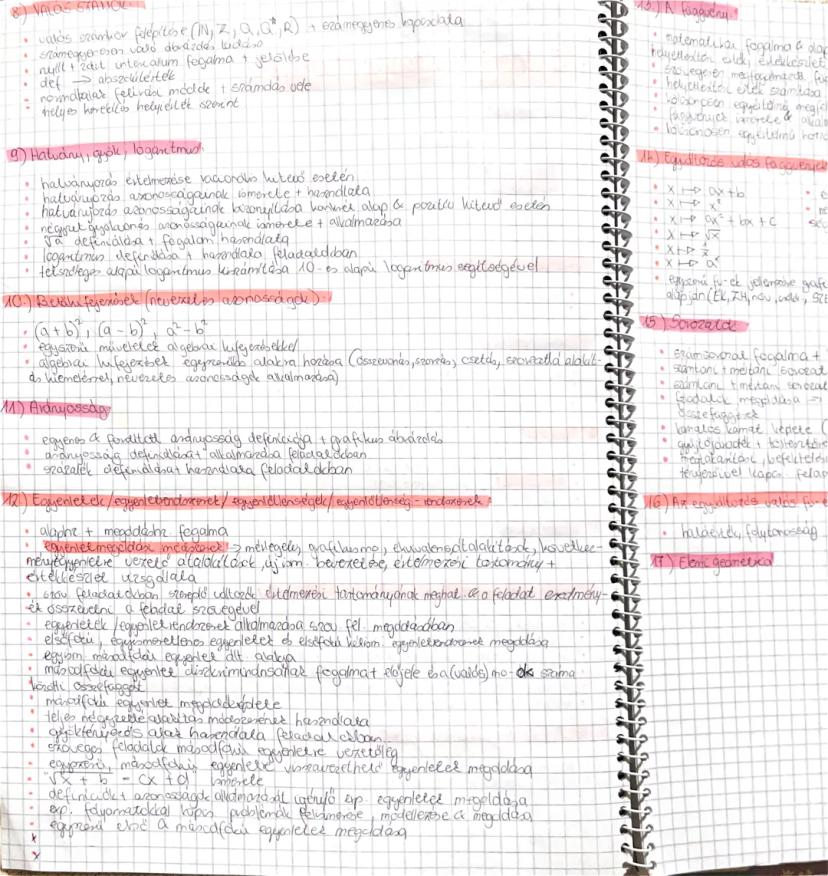 8) VALÓS SZÁMOK
• valós számkör felépítése (N, Z, Q, Q*, R) + számegyenes kapcsolata
• számegyenesen való ábrázolás tudása
• nyílt + zárt intervallum fogalma + jelölése
• def → abszolútérték
• normálalak felírási módok + számolás vele
• helyes kerekítés helyiérték szerint
9) Hatvány, gyök, logaritmus:
• hatványozás értelmezése racionális kitevő esetén
• hatványozás azonosságainak ismerete + használata
• hatványozás azonosságainak bizonyítása konkrét alap és pozitív kitevő esetén
• négyzetgyökvonás azonosságainak ismerete + alkalmazása
• √a definiálása + fogalom használata
• logaritmus definiálása + használata feladatokban
• tetszőleges alapú logaritmus kiszámítása 10-es alapú logaritmus segítségével
10.) Betűkifejezések (nevezetes azonosságok):
• (a+b)², (a-b)², a²-b²
• egyszerű műveletek algebrai kifejezésekkel
• algebrai kifejezések egyszerűbb alakra hozása (összevonás, szorzás, osztás, szorzattá alakít-
ás kiemeléssel, nevezetes azonosságok alkalmazása)
11) Arányosság
• egyenes és fordított arányosság definíciója + grafikus ábrázolás
• arányosság definiálása + alkalmazása feladatokban
• százalék definiálása + használata feladatokban
12) Egyenletek/egyenletrendszerek/egyenlőtlenségek/egyenlőtlenség-rendszerek
• alaphz + megoldáshz. fogalma
• egyenletmegoldási módszerek → mérlegelv, grafikus mo, ekvivalens átalakítások, következ-
ményegyenletre vezető átalakítások, új ism. bevezetése, értelmezési tartomány +
értékkészlet vizsgálata
• szöv feladatokban szereplő változók értelmezési tartományának meghat. és a feladat eredmény-
ét összevetni a feladat szövegével
• egyenletek/egyenletrendszerek alkalmazása szöv. fel. megoldásában
• elsőfokú, egyismeretlenes egyenletek és elsőfokú kétism. egyenletrendszerek megoldása
• egyism másodfokú egyenlet ált. alakja
• másodfokú egyenlet diszkriminánsának fogalma + előjele és a (valós) mo-ok száma
közötti összefüggés
• másodfokú egyenlet megoldóképlete
• teljes négyzetté alakítás módszerének használata
• gyöktényezős alak használata feladatokban
• szöveges feladatok másodfokú egyenletre vezetőleg
• egyszerű, másodfokú egyenletre visszavezethető egyenletek megoldása
• √x + b = cx + d ismerete
• definíciók + azonosságok alkalmazását igénylő exp. egyenletek megoldása
• exp. folyamatokkal kapcs. problémák felismerése, modellezése és megoldása
• egyszerű első és másodfokú egyenletek megoldása
x
x
13) A függvény
• matematikai fogalma & alap
helyettesítési érték, értékkészlet
• szövegesen megfogalmazott fü
• helyettesítési érték számítása
• kölcsönösen egyértelmű megf
• függvények ismerete & alkalm
• kölcsönösen egyértelmű hozzá
14) Együtthatós valós függvények
• x ↦ ax+b
• x ↦ x²
• x ↦ ax² + bx + c
• x ↦ √x
• x ↦
• x ↦ aˣ
• egyszerű fv-ek jellemzése grafi
alapján (ÉK, ZH, növ,
15) Sorozatok
• számsorozat fogalma +
• számtani + mértani sorozat
• számtani + mértani sorozat
• feladatok megoldása →
összefüggések
• kamatos kamat képlete (
• gyűjtőjáradék + törlesztőré
• megtakarítási, befektetési
tényezővel kapcs. felad
16) Az együtthatós valós fü
• határérték, folytonosság
17) Elemi geometria